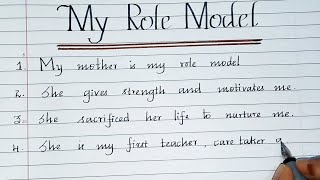 My Role Model
1. My mother is my role model
2. She gives strength and motivates me.
3. She sacrificed her life to nurture me.
4. She is my first teacher, care taker